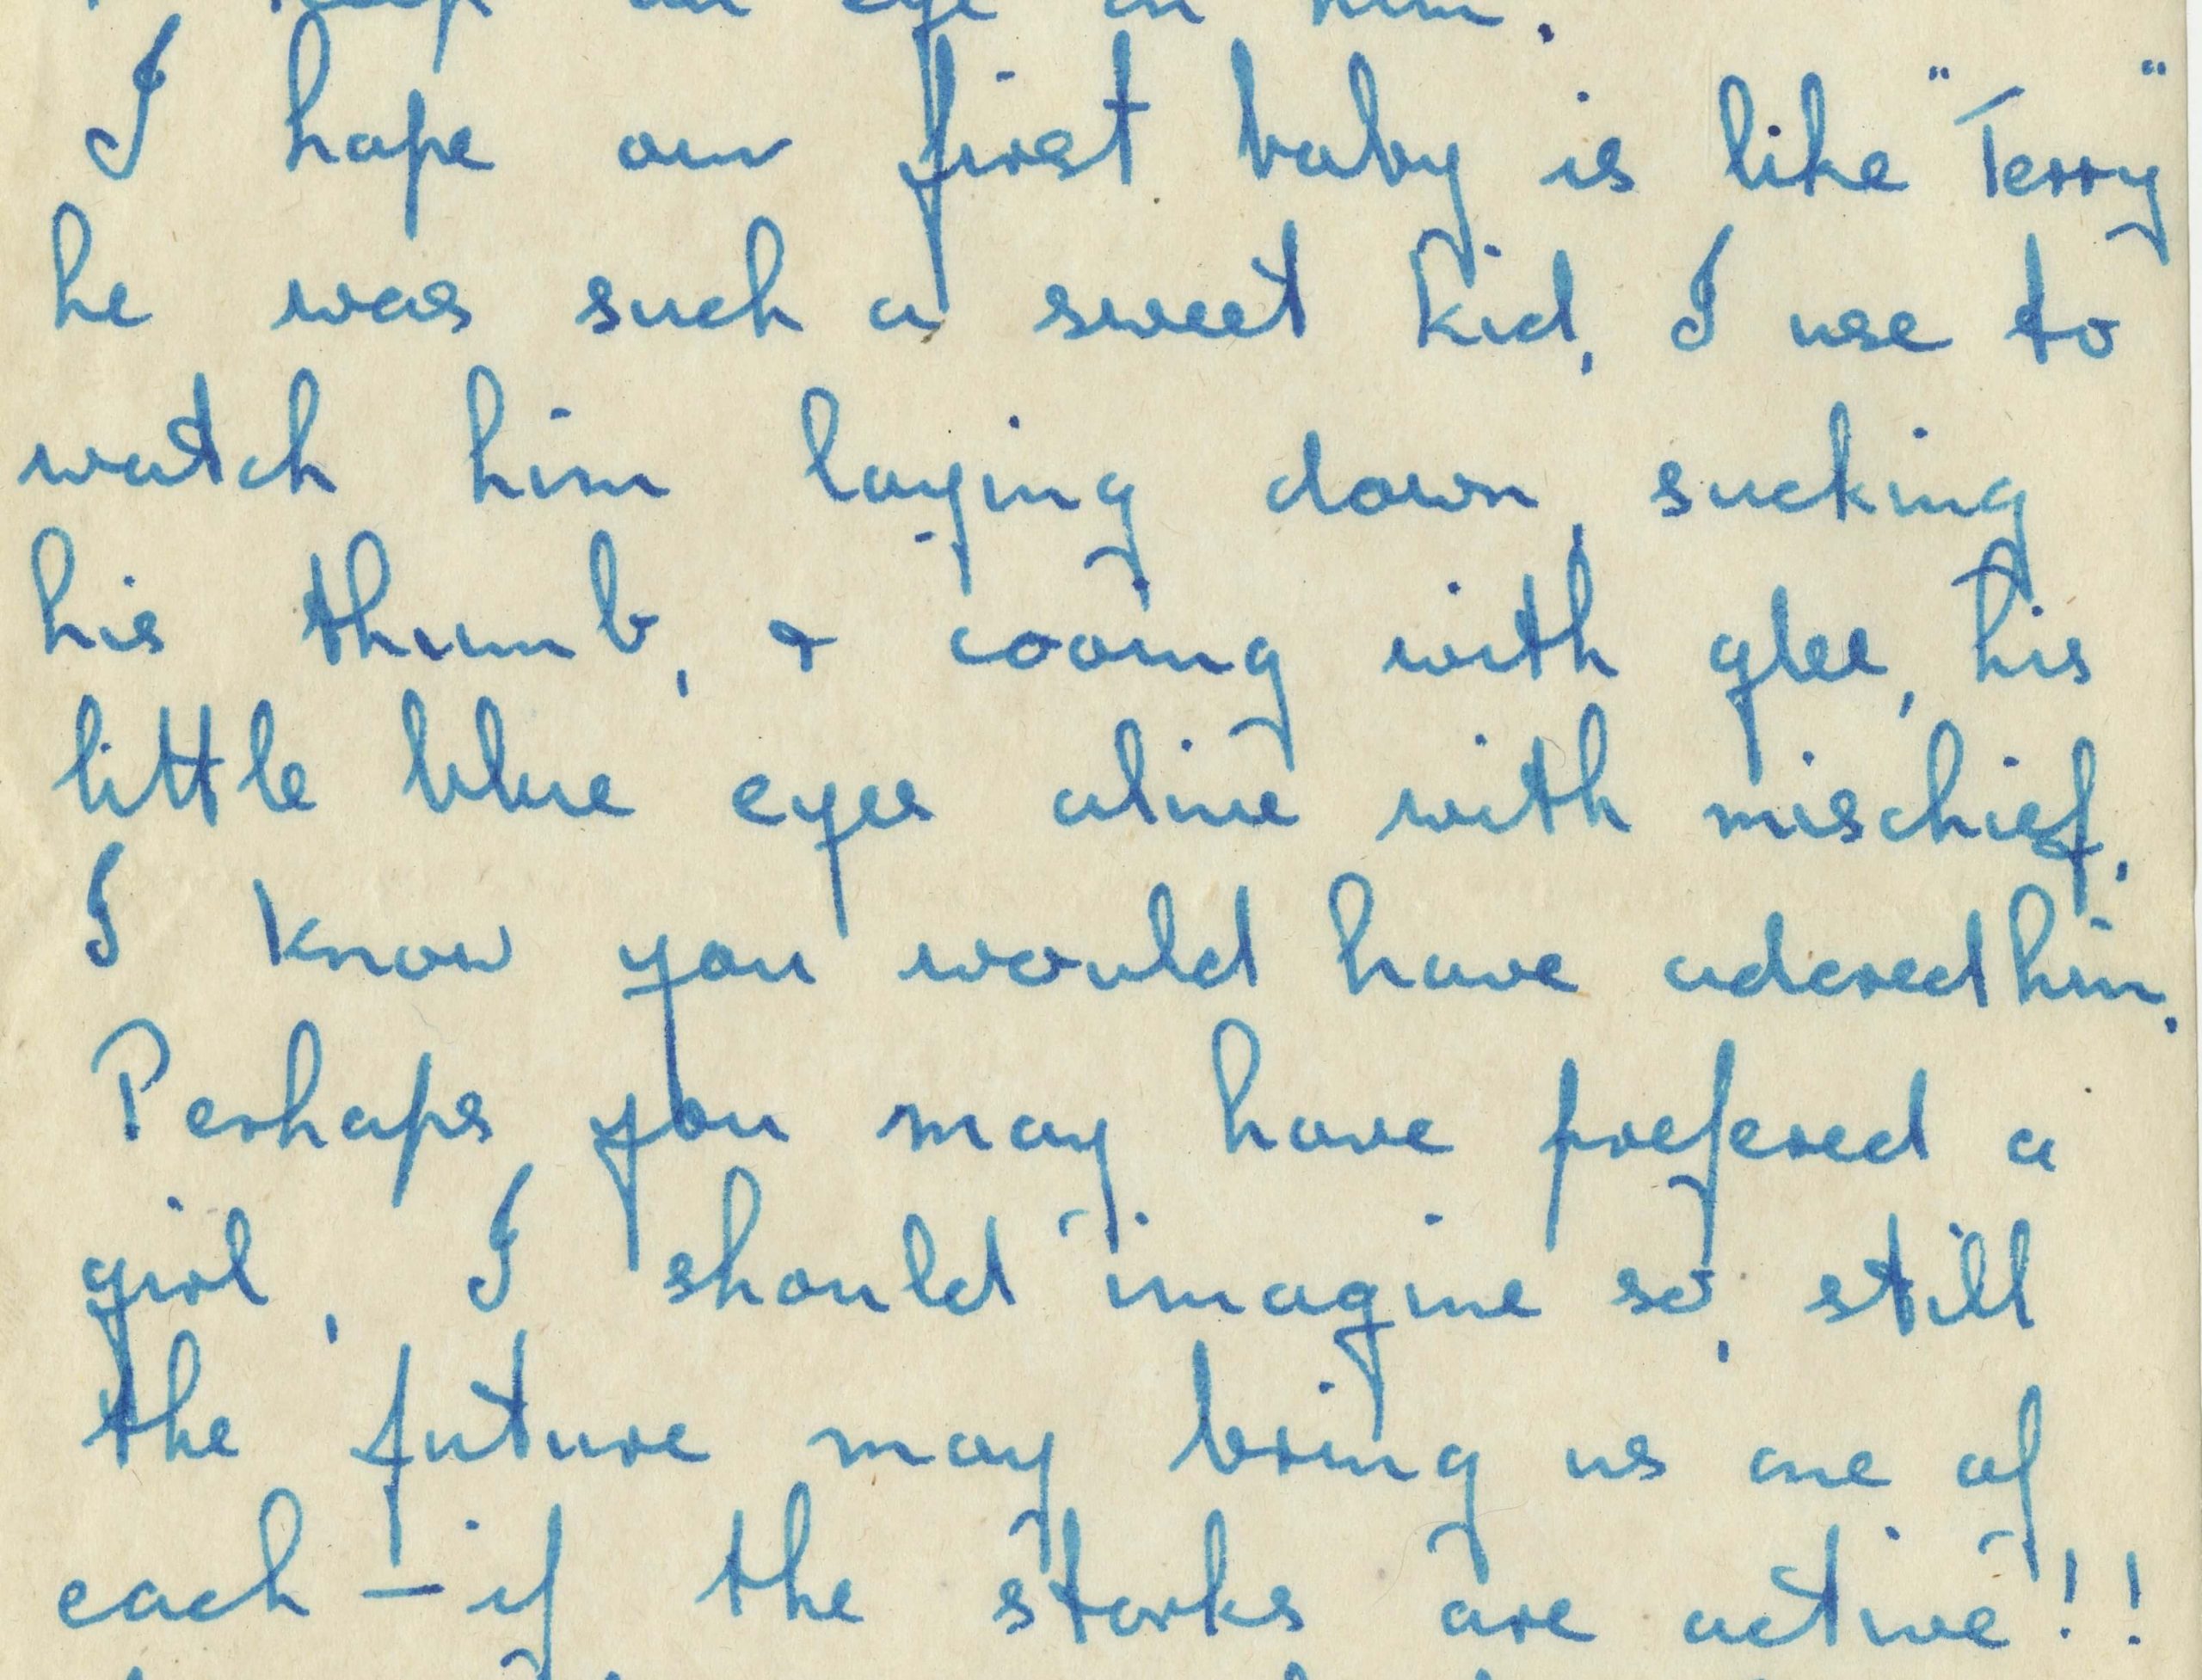 keep an eye on him.
I hope our first baby is like "Terry"
he was such a sweet kid, I use to
watch him laying down, sucking
his thumb, & cooing with glee, his
little blue eyes alive with mischief.
I know you would have adored him.
Perhaps you may have prefered a
girl, I should imagine so, still
the future may bring us one of
each – if the storks are active!!